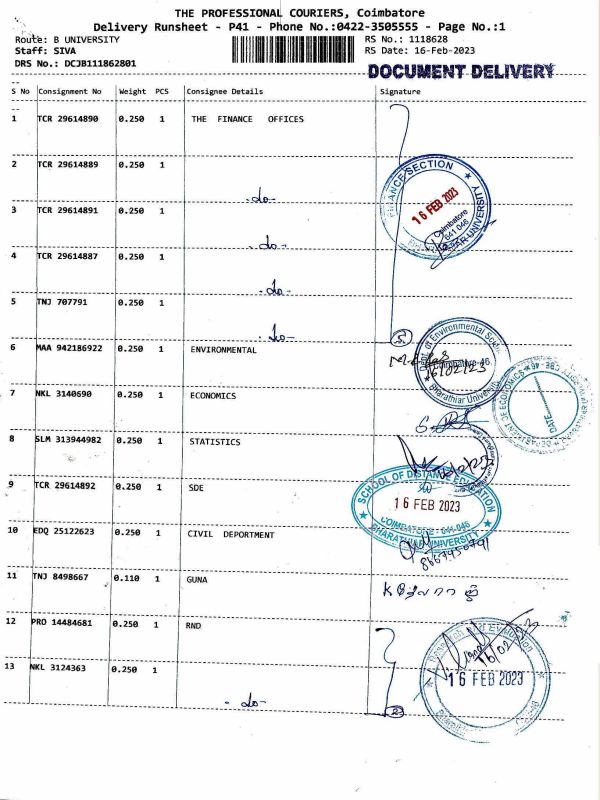 THE PROFESSIONAL COURIERS, Coimbatore
Delivery Runsheet - P41 - Phone No.:0422-3505555 - Page No.:1
Route: B UNIVERSITY RS No.: 1118628
Staff: SIVA RS Date: 16-Feb-2023
DRS No.: DCJB111862801
DOCUMENT DELIVERY
S No Consignment No Weight PCS Consignee Details Signature
1 TCR 29614890 0.250 1 THE FINANCE OFFICES
2 TCR 29614889 0.250 1
-do-
FINANCE SECTION
16 FEB 2023
Coimbatore
641 046
3 TCR 29614891 0.250 1
-do-
4 TCR 29614887 0.250 1
-do-
5 TNJ 707791 0.250 1
-do-
5
6 MAA 942186922 0.250 1 ENVIRONMENTAL
of Environmental
Coimbatore-46
16/02/23
Bharathiar University
7 NKL 3140690 0.250 1 ECONOMICS
DATE
8 SLM 313944982 0.250 1 STATISTICS
9 TCR 29614892 0.250 1 SDE
SCHOOL OF DISTANCE EDUCATION
16 FEB 2023
COIMBATORE - 641 046
BHARATHIAR UNIVERSITY
10 EDQ 25122623 0.250 1 CIVIL DEPORTMENT
11 TNJ 8498667 0.110 1 GUNA
12 PRO 14484681 0.250 1 RND
16/02/23
16 FEB 2023
13 NKL 3124363 0.250 1
-do-
2